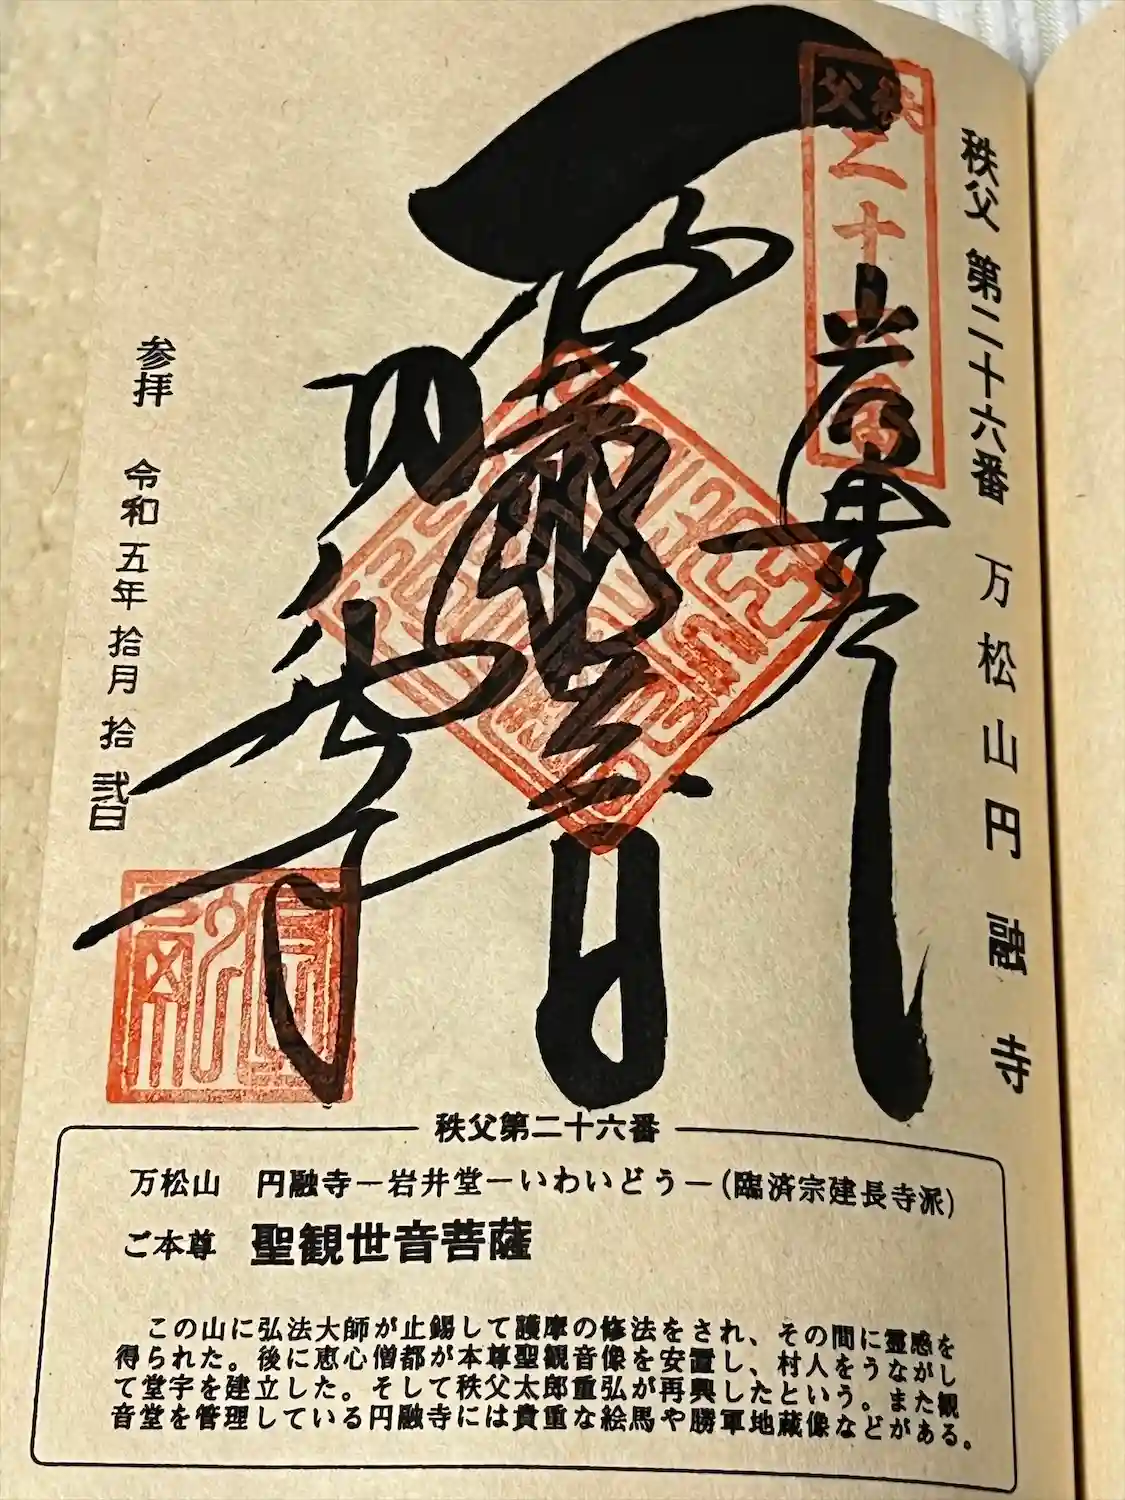 秩父 第二十六番 万松山円融寺
秩父二十六番
岩井堂
参拝 令和五年拾月拾弐日
秩父第二十六番
万松山 円融寺－岩井堂－いわいどう－(臨済宗建長寺派)
ご本尊 聖観世音菩薩
この山に弘法大師が止錫して護摩の修法をされ、その間に霊感を
得られた。後に恵心僧都が本尊聖観音像を安置し、村人をうながし
て堂宇を建立した。そして秩父太郎重弘が再興したという。また観
音堂を管理している円融寺には貴重な絵馬や勝軍地蔵像などがある。